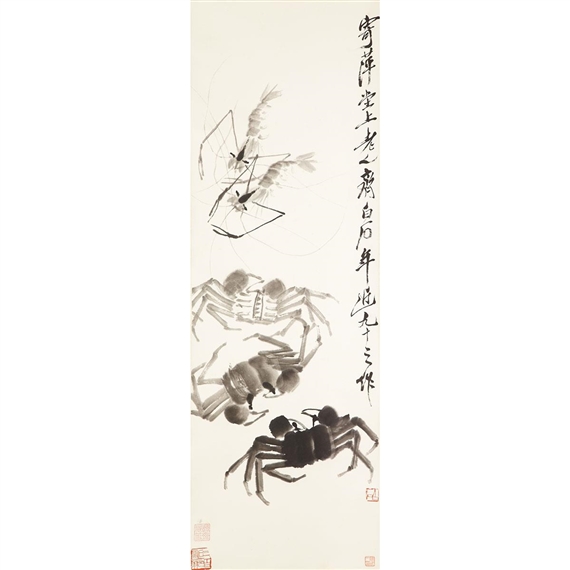 寄萍堂上老人齊白石年近九十之作